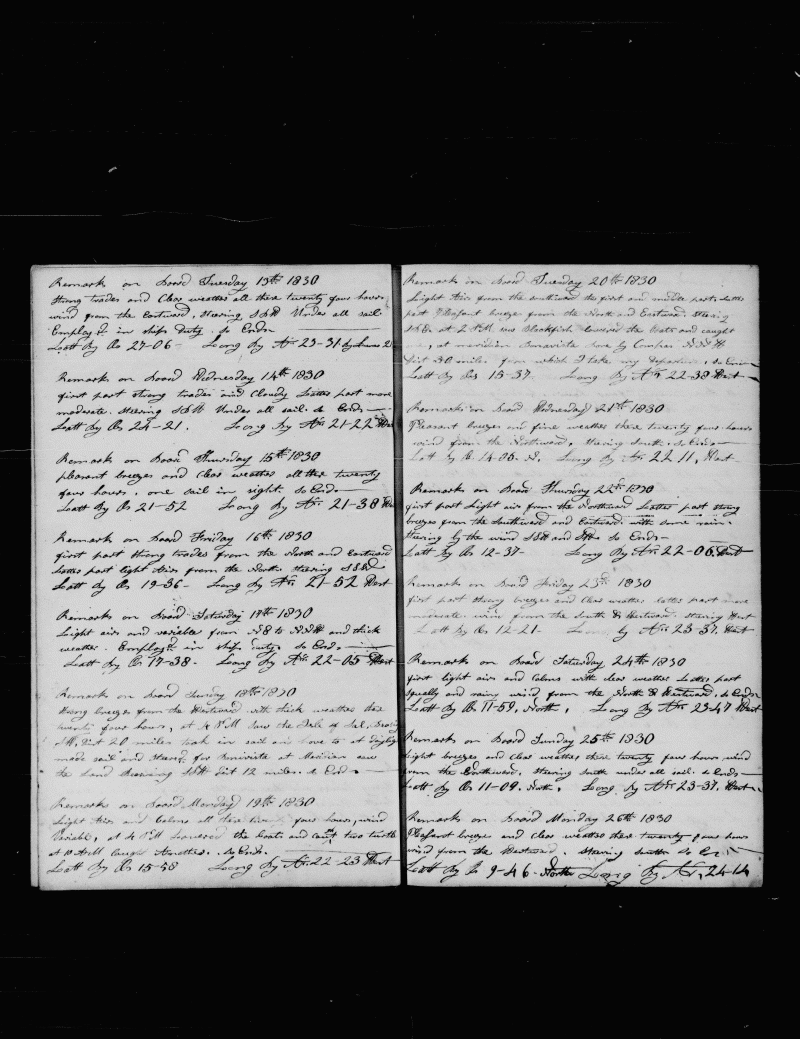 Remarks on Board Tuesday 13th 1830
Strong trades and Clear weather all these twenty four hours
wind from the Eastward, Steering SSW Under all sail
Employed in ships Duty. So Ends
Latt By Ob 27-06- Long By Ar 23-31
Remarks on Board Wednesday 14th 1830
first part strong trades and Cloudy Latter part more
moderate. Steering SSW Under all sail. So Ends
Latt By Ob 24-21. Long by Ar 21-22 West
Remarks on Board Thursday 15th 1830
pleasant breezes and Clear weather all these twenty
four hours. one sail in sight. So Ends
Latt By Ob 21-52 Long By Ar. 21-38 West
Remarks on Board Friday 16th 1830
first part strong trades from the North and Eastward
Latter part light Airs from the North. Steering SSW
Latt By Ob 19-36- Long By Ar. 21-52 West
Remarks on Board Saturday 17th 1830
Light airs and variable from NE to NNW and thick
weather. Employed in ships duty. So Ends
Latt By Ob 17-38- Long By Ar. 22-05 West
Remarks on Board Sunday 18th 1830
Strong breezes from the Westward with thick weather these
twenty four hours, at 4 PM Saw the Isle of Sal, Bearing
SW, Dist 20 miles took in sail and hove to at daylight
made sail and Steered for Bonavista at Meridian saw
the Land Bearing Dist 12 miles. So Ends
Remarks on Board Monday 19th 1830
Light Airs and Calms all these twenty four hours, wind
Variable, at 4 PM lowered the boats and caught two turtle
at 10 AM Caught Another. So Ends.
Latt By Ob 15-58 Long By Ar. 22-23 West
Remarks on Board Tuesday 20th 1830
Light Airs from the southward the first and middle parts. Latter
part Pleasant breezes from the North and Eastward. Steering
SSE at 2 PM saw Blackfish lowered the Boats and caught
at meridian Bonavista bore by Compass NNW
Dist 30 miles. from which I take my departure, So Ends
Latt By Ob 15-37. Long By Ar. 22-38 West
Remarks on Board Wednesday 21st 1830
Pleasant breezes and fine weather these twenty four hours
wind from the Northward, Steering South. So Ends
Latt by Ob 14-06. N. Long By Ar 22 11, West
Remarks on Board Thursday 22th 1830
first part Light airs from the Northward Latter part strong
breezes from the Southward and Eastward. with some rain.
Steering by the wind So Ends
Latt By Ob 12-37- Long By Ar. 22-06 West
Remarks on Board Friday 23th 1830
first part strong breezes and Clear weather latter part more
moderate wind from the South & Westward. Steering West
Latt By Ob 12-21- Long by Ar. 23-37, West
Remarks on Board Saturday 24th 1830
first light airs and Calms with clear weather Latter part
Squally and rainy wind from the North & Westward. So Ends
Latt By Ob 11-59. North, Long By Ar. 23-47 West
Remarks on Board Sunday 25th 1830
Light breezes and clear weather these twenty four hours wind
from the Northward, Steering South under all sail. So Ends
Latt By Ob 11-09. North, Long. By Ar. 23-37. West
Remarks on Board Monday 26th 1830
Pleasant breeze and clear weather these twenty four hours
wind from the Westward. Steering South So Ends
Latt By Ob 9-46- North Long By Ar. 24-14